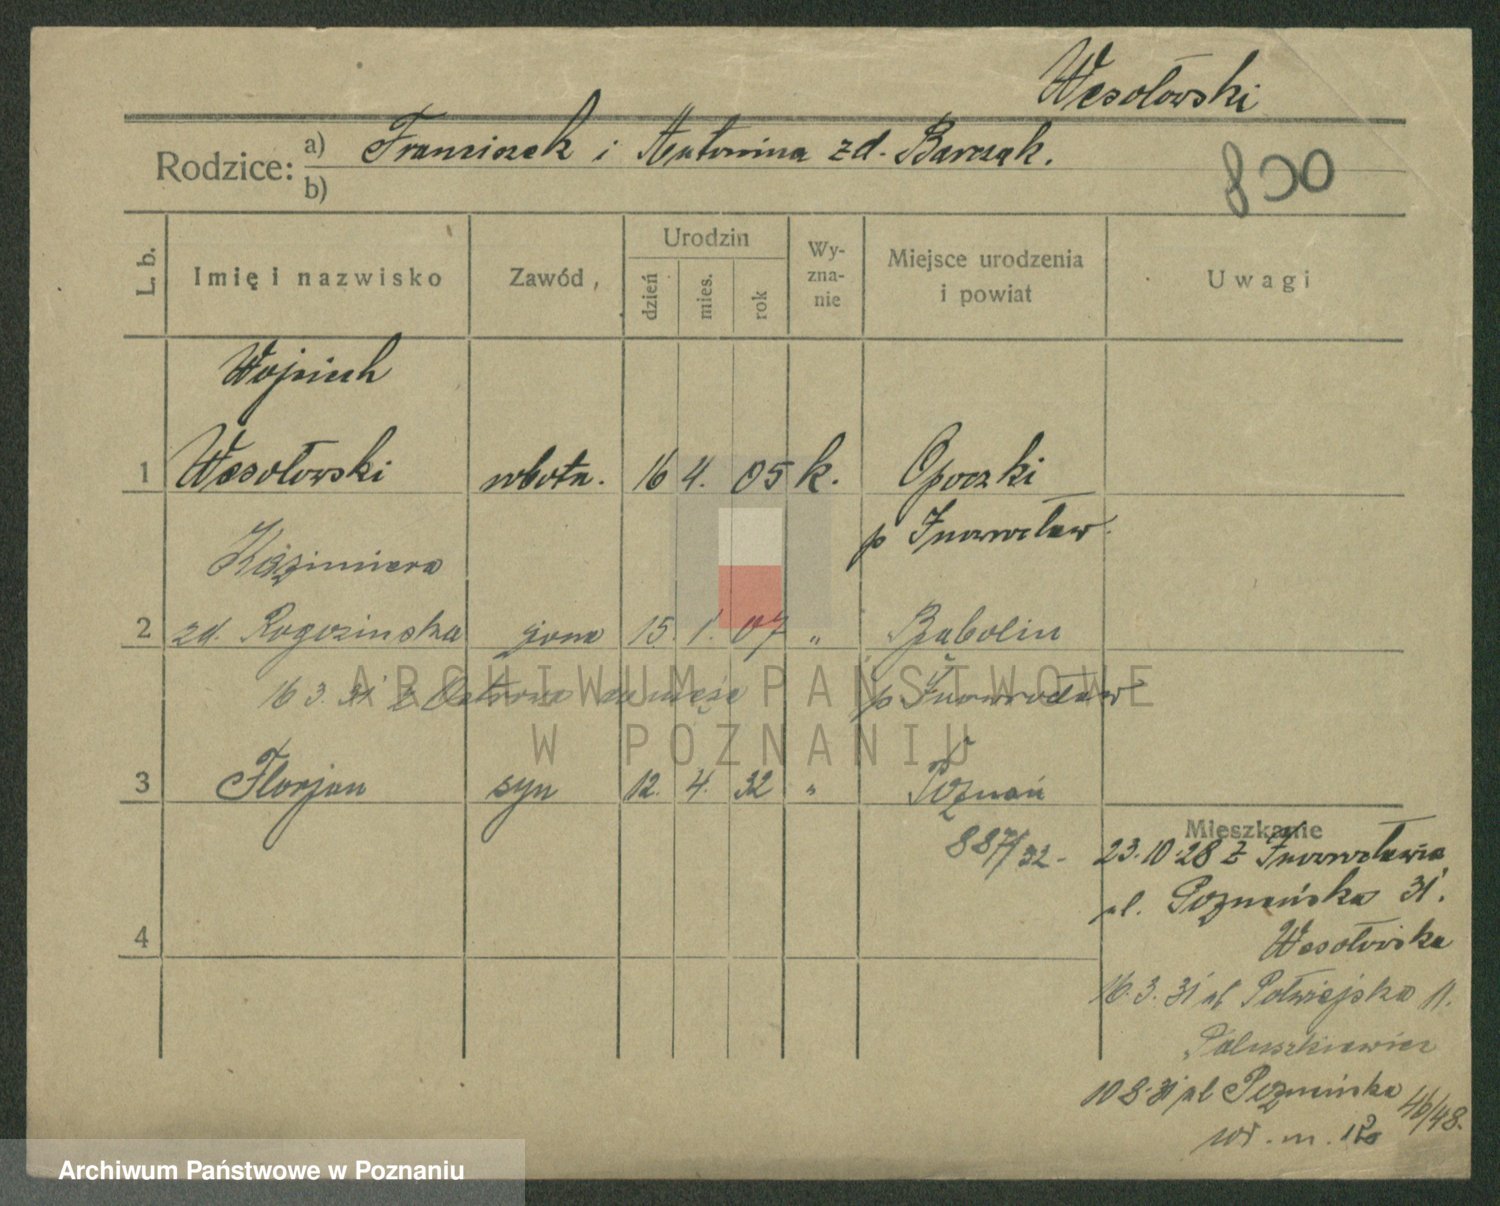 Wesołowski
Rodzice: a) Franciszek i Antonina zd. Barczak.
b)
830
L. b.
Imię i nazwisko
Zawód,
Urodzin
dzień
mies.
rok
Wy-
zna-
nie
Miejsce urodzenia
i powiat
Uwagi
Wojciech
1 Wesołowski robotn. 16 4. 05 k. Opoczki
p Inowrocław.
Kazimiera
2 zd. Rogozinska żona 15. 1. 07 „ Bąbolin
16 3. 31 z Ostrowa p Inowrocław
3 Florjan syn 12. 4. 32 „ Poznań
887/32-
4
Mieszkanie
23.10.28 z Inowrocławia
ul. Poznańska 31.
Wesołowska
16.3.31 ul Półwiejska 11.
Paluszkiewicz
10 8.31 ul Poznańska 46/48.
m.
ARCHIWUM PAŃSTWOWE
W POZNANIU
Archiwum Państwowe w Poznaniu